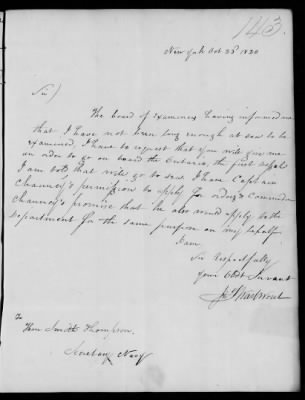 143.
New York Oct 23d 1820
Sir)
The board of examiners having informed me
that I have not been long enough at sea to be
examined, I have to request that you will give me
an order to go on board the Ontario, the first vessel
I am told that will go to sea I have Captain
Chauncey's permission to apply for orders & Commodore
Chauncey's promise that he also would apply to the
department for the same purpose on my behalf
I am
Sir Respectfully
Your Obdt Servant
To
Hon Smith Thompson.
Secretary Navy